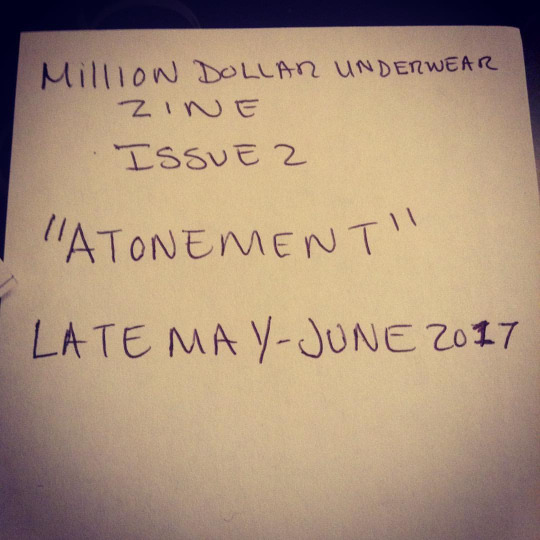 MILLION DOLLAR UNDERWEAR
ZINE
ISSUE 2
"ATONEMENT"
LATE MAY-JUNE 2017